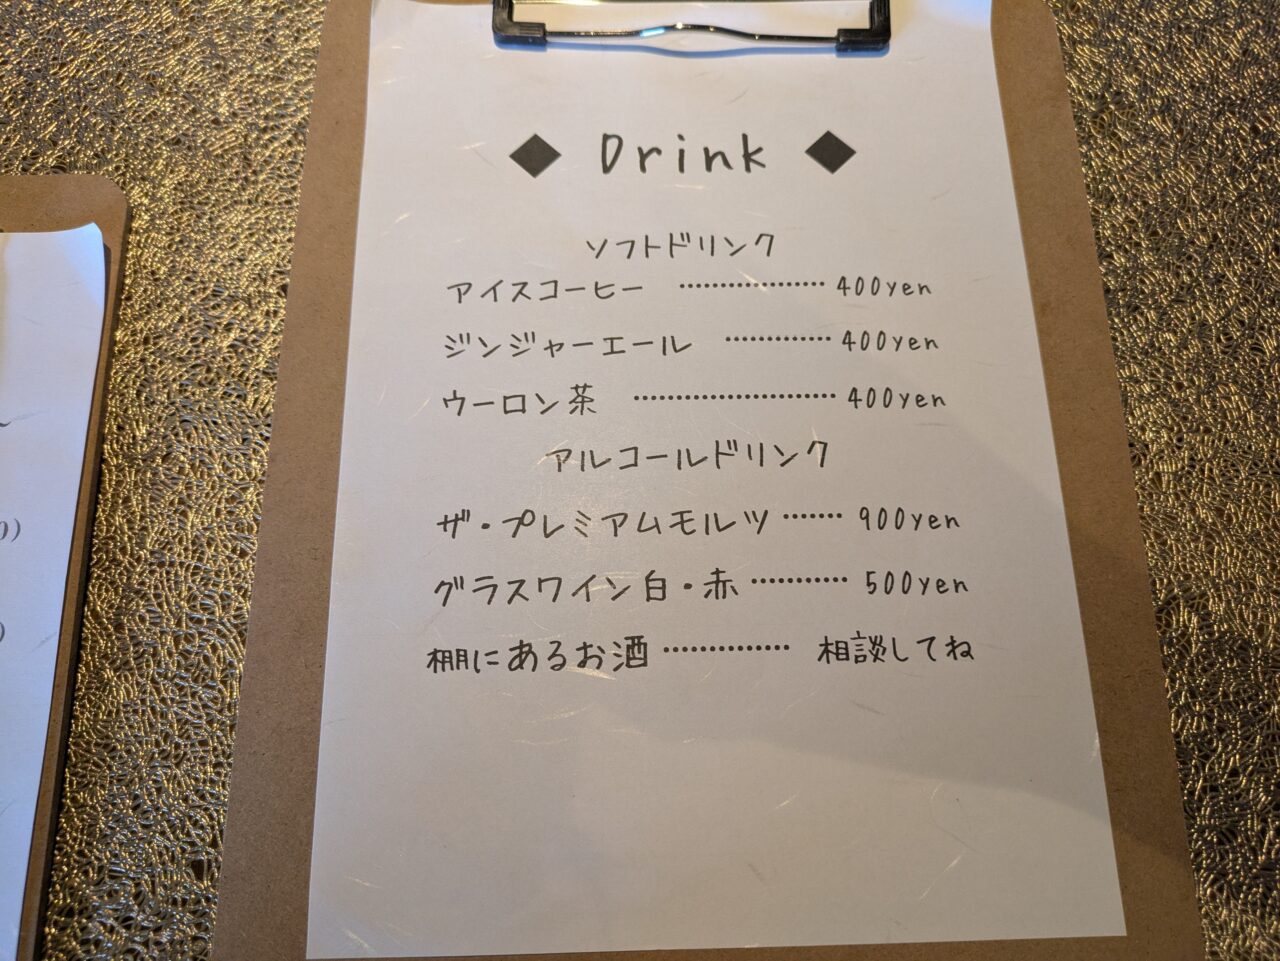 ◆ Drink ◆
ソフトドリンク
アイスコーヒー ……………… 400yen
ジンジャーエール ………… 400yen
ウーロン茶 …………………… 400yen
アルコールドリンク
ザ・プレミアムモルツ ……. 900yen
グラスワイン白・赤 ………… 500yen
棚にあるお酒 …………… 相談してね
0)
)